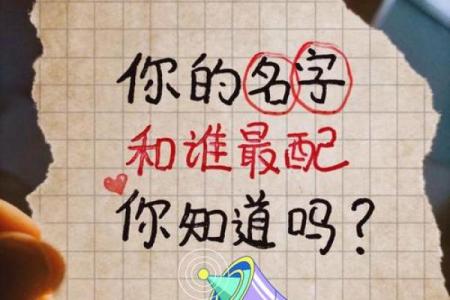 你的名字
和谁最配
你知道吗？